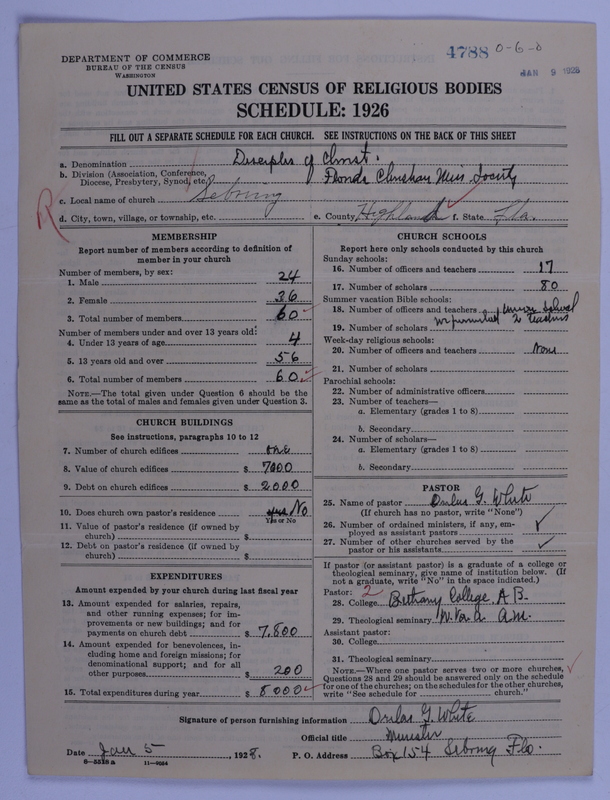 4788 0-6-0
JAN 9 1928
DEPARTMENT OF COMMERCE
BUREAU OF THE CENSUS
WASHINGTON
UNITED STATES CENSUS OF RELIGIOUS BODIES
SCHEDULE: 1926
FILL OUT A SEPARATE SCHEDULE FOR EACH CHURCH. SEE INSTRUCTIONS ON THE BACK OF THIS SHEET
a. Denomination Disciples of Christ.
b. Division (Association, Conference,
Diocese, Presbytery, Synod, etc.) Florida Christian Miss. Society
c. Local name of church Sebring
d. City, town, village, or township, etc. e. County Highlands f. State Fla.
MEMBERSHIP
Report number of members according to definition of
member in your church
Number of members, by sex:
1. Male 24
2. Female 36
3. Total number of members 60
Number of members under and over 13 years old:
4. Under 13 years of age 4
5. 13 years old and over 56
6. Total number of members 60
NOTE.—The total given under Question 6 should be the
same as the total of males and females given under Question 3.
CHURCH BUILDINGS
See instructions, paragraphs 10 to 12
7. Number of church edifices one
8. Value of church edifices $ 7000
9. Debt on church edifices $ 2000
10. Does church own pastor's residence yes No
Yes or No
11. Value of pastor's residence (if owned by
church) $
12. Debt on pastor's residence (if owned by
church) $
EXPENDITURES
Amount expended by your church during last fiscal year
13. Amount expended for salaries, repairs,
and other running expenses; for im-
provements or new buildings; and for
payments on church debt $ 7,800
14. Amount expended for benevolences, in-
cluding home and foreign missions; for
denominational support; and for all
other purposes $ 200
15. Total expenditures during year $ 8000
CHURCH SCHOOLS
Report here only schools conducted by this church
Sunday schools:
16. Number of officers and teachers 17
17. Number of scholars 80
Summer vacation Bible schools:
18. Number of officers and teachers Union School
19. Number of scholars we furnished 2 teachers
Week-day religious schools:
20. Number of officers and teachers None
21. Number of scholars
Parochial schools:
22. Number of administrative officers
23. Number of teachers—
a. Elementary (grades 1 to 8)
b. Secondary
24. Number of scholars—
a. Elementary (grades 1 to 8)
b. Secondary
PASTOR
25. Name of pastor G. White
(If church has no pastor, write "None")
26. Number of ordained ministers, if any, em-
ployed as assistant pastors
27. Number of other churches served by the
pastor or his assistants
If pastor (or assistant pastor) is a graduate of a college or
theological seminary, give name of institution below. (If
not a graduate, write "No" in the space indicated.)
Pastor: 2
28. College Bethany College A.B.
29. Theological seminary W. Va. A.M.
Assistant pastor:
30. College
31. Theological seminary
NOTE.—Where one pastor serves two or more churches,
Questions 28 and 29 should be answered only on the schedule
for one of the churches; on the schedules for the other churches,
write "See schedule for church."
Signature of person furnishing information G. White
Official title Minister
Date Jan 5, 1928. P. O. Address Box 154 Sebring Fla.
6-5538a 11-9064